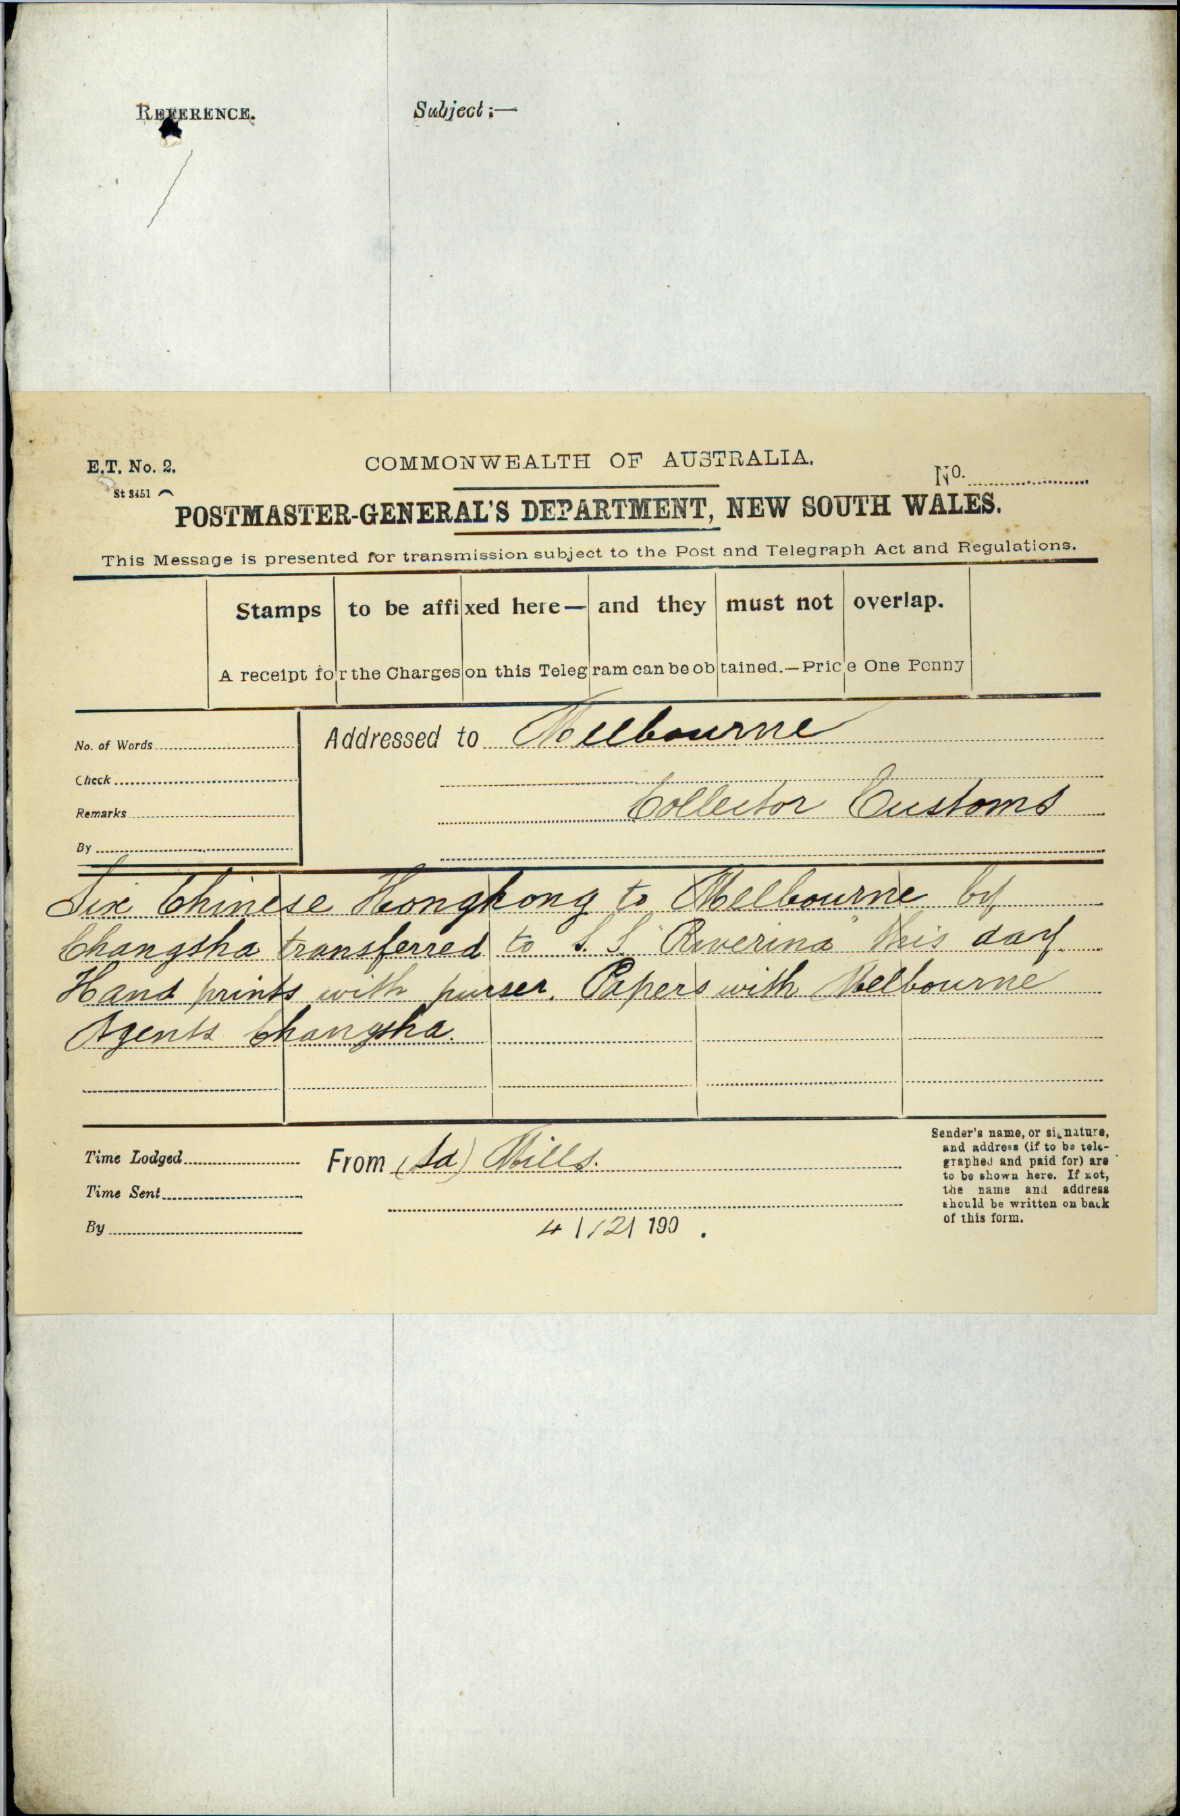 REFERENCE.
Subject:—
E.T. No. 2.
COMMONWEALTH OF AUSTRALIA.
No.
St 3451
POSTMASTER-GENERAL'S DEPARTMENT, NEW SOUTH WALES.
This Message is presented for transmission subject to the Post and Telegraph Act and Regulations.
Stamps to be affixed here— and they must not overlap.
A receipt for the Charges on this Telegram can be obtained.—Price One Penny
No. of Words
Check
Remarks
By
Addressed to Melbourne
Collector Customs
Six Chinese Hongkong to Melbourne by
Changsha transferred to S.S. "Riverina" this day.
Hand prints with purser. Papers with Melbourne
Agents Changsha.
Time Lodged
Time Sent
By
From (Sd) Mills.
4/12/190 .
Sender's name, or signature,
and address (if to be tele-
graphed and paid for) are
to be shown here. If not,
the name and address
should be written on back
of this form.